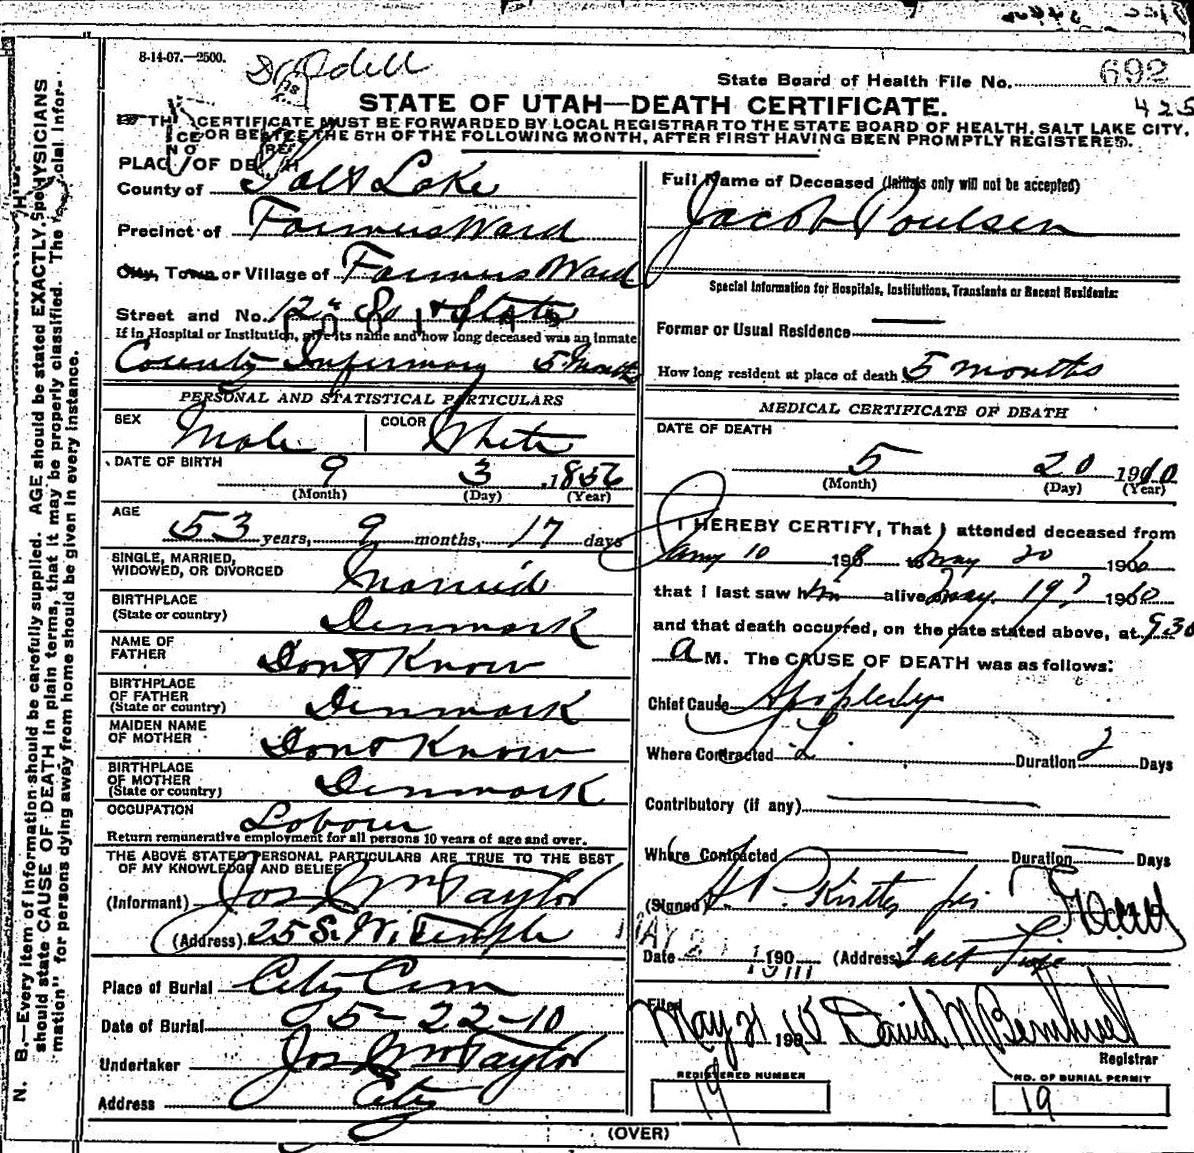 8-14-07.—2500.
Dr Odell
State Board of Health File No. 692
425
STATE OF UTAH—DEATH CERTIFICATE.
CERTIFICATE MUST BE FORWARDED BY LOCAL REGISTRAR TO THE STATE BOARD OF HEALTH, SALT LAKE CITY,
OR BEFORE THE 5TH OF THE FOLLOWING MONTH, AFTER FIRST HAVING BEEN PROMPTLY REGISTERED.
PLACE OF DEATH
County of Salt Lake
Precinct of Farmers Ward
City, Town or Village of Farmers Ward
Street and No. 12th So & State
If in Hospital or Institution, give its name and how long deceased was an inmate
County Infirmary 5 Months
PERSONAL AND STATISTICAL PARTICULARS
SEX Male COLOR White
DATE OF BIRTH 9 3 1856
(Month) (Day) (Year)
AGE 53 years, 9 months, 17 days
SINGLE, MARRIED,
WIDOWED, OR DIVORCED Married
BIRTHPLACE
(State or country) Denmark
NAME OF
FATHER Dont Know
BIRTHPLACE
OF FATHER
(State or country) Denmark
MAIDEN NAME
OF MOTHER Dont Know
BIRTHPLACE
OF MOTHER
(State or country) Denmark
OCCUPATION Laborer
Return remunerative employment for all persons 10 years of age and over.
THE ABOVE STATED PERSONAL PARTICULARS ARE TRUE TO THE BEST
OF MY KNOWLEDGE AND BELIEF
(Informant) Jos Wm Taylor
(Address) 25 S. W. Temple
Place of Burial City Cem
Date of Burial 5-22-10
Undertaker Jos Wm Taylor
Address City
Full Name of Deceased (Initials only will not be accepted)
Jacob Poulsen
Special Information for Hospitals, Institutions, Transients or Recent Residents:
Former or Usual Residence
How long resident at place of death 5 months
MEDICAL CERTIFICATE OF DEATH
DATE OF DEATH
5 20 1910
(Month) (Day) (Year)
I HEREBY CERTIFY, That I attended deceased from
Jany 10 190 to May 20 1910
that I last saw him alive May 19, 1910
and that death occurred, on the date stated above, at 9.30
a M. The CAUSE OF DEATH was as follows:
Chief Cause Apoplexy
Where Contracted S.L. Duration 2 Days
Contributory (if any)
Where Contracted Duration Days
(Signed) H P. Kirtley for
Date MAY 21 1910 190 (Address) Salt Lake
Filed May 21 1910 David M Bernhisel
Registrar
REGISTERED NUMBER
19
NO. OF BURIAL PERMIT
19
(OVER)
N. B.—Every item of information should be carefully supplied. AGE should be stated EXACTLY. PHYSICIANS
should state CAUSE OF DEATH in plain terms, that it may be properly classified. The "Special Infor-
mation" for persons dying away from home should be given in every instance.